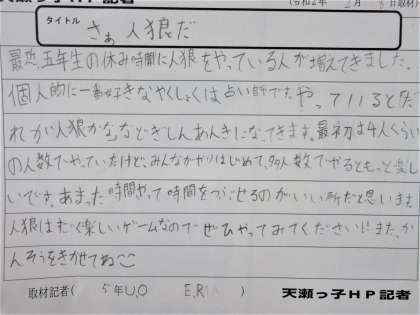 天瀬っ子HP記者
(令和2年2月 日取材)
タイトル
さぁ人狼だ
最近五年生の休み時間に人狼をやっている人が増えてきました。
個人的に一番好きなやくしょくは占い師です。やっていると、だ
れが人狼かな、などとぎしんあんきになってきます。最初は4人くらい
の人数でやっていたけど、みんなやりはじめて、多人数でやるともっと楽し
いです。あまった時間やって時間をつぶせるのがいい所だと思います。
人狼はすごく楽しいゲームなのでぜひやってみてください!!また、か
んそうをきかせてね
取材記者( 5年U,O E,R )
天瀬っ子HP記者